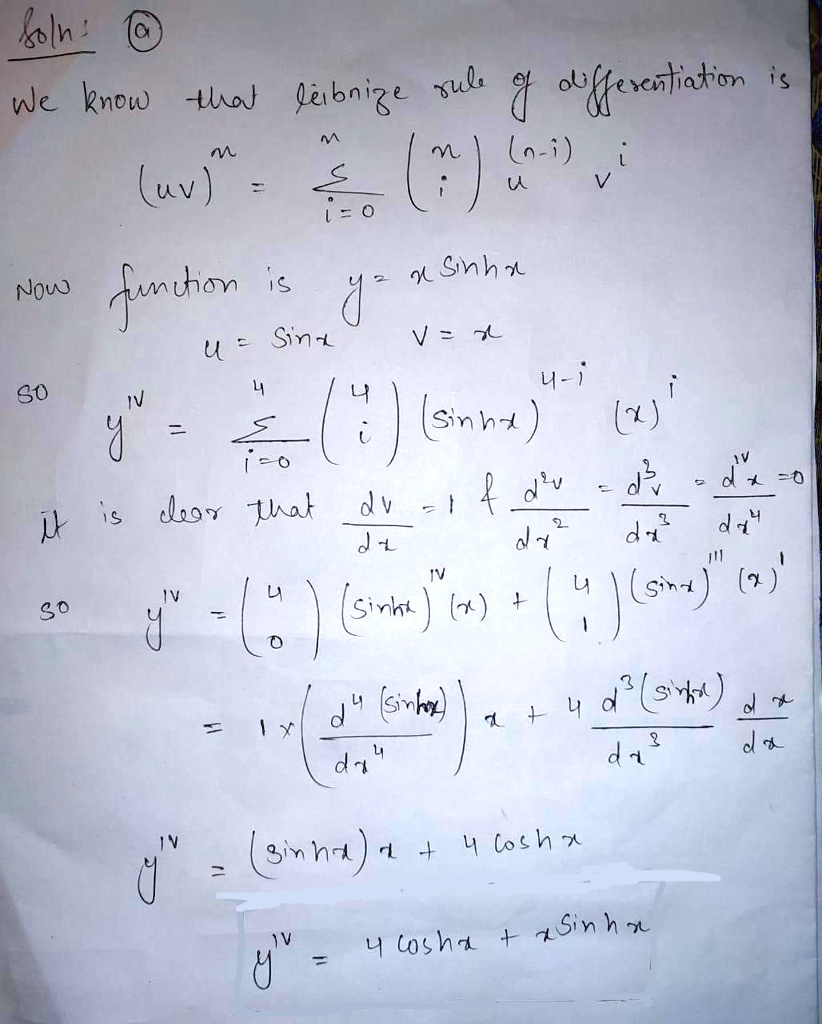 Soln: (a)
We know that leibnize rule of differentiation is
(uv)^n = Σ_{i=0}^{n} (n i) u^(n-i) v^i
Now function is y = x sinhx
u = Sinx v = x
so y^IV = Σ_{i=0}^{4} (4 i) (sinhx)^{4-i} (x)^i
it is clear that dv/dx = 1 & d²v/dx² = d³v/dx³ = d^IV x/dx⁴ = 0
so y^IV = (4 0) (Sinhx)^IV (x) + (4 1) (sinx)^III (x)^I
= 1 x (d⁴(Sinhx)/dx⁴) x + 4 d³(sinhx)/dx³ dx/dx
y^IV = (Sinhx) x + 4 Coshx
y^IV = 4 coshx + x Sinhx